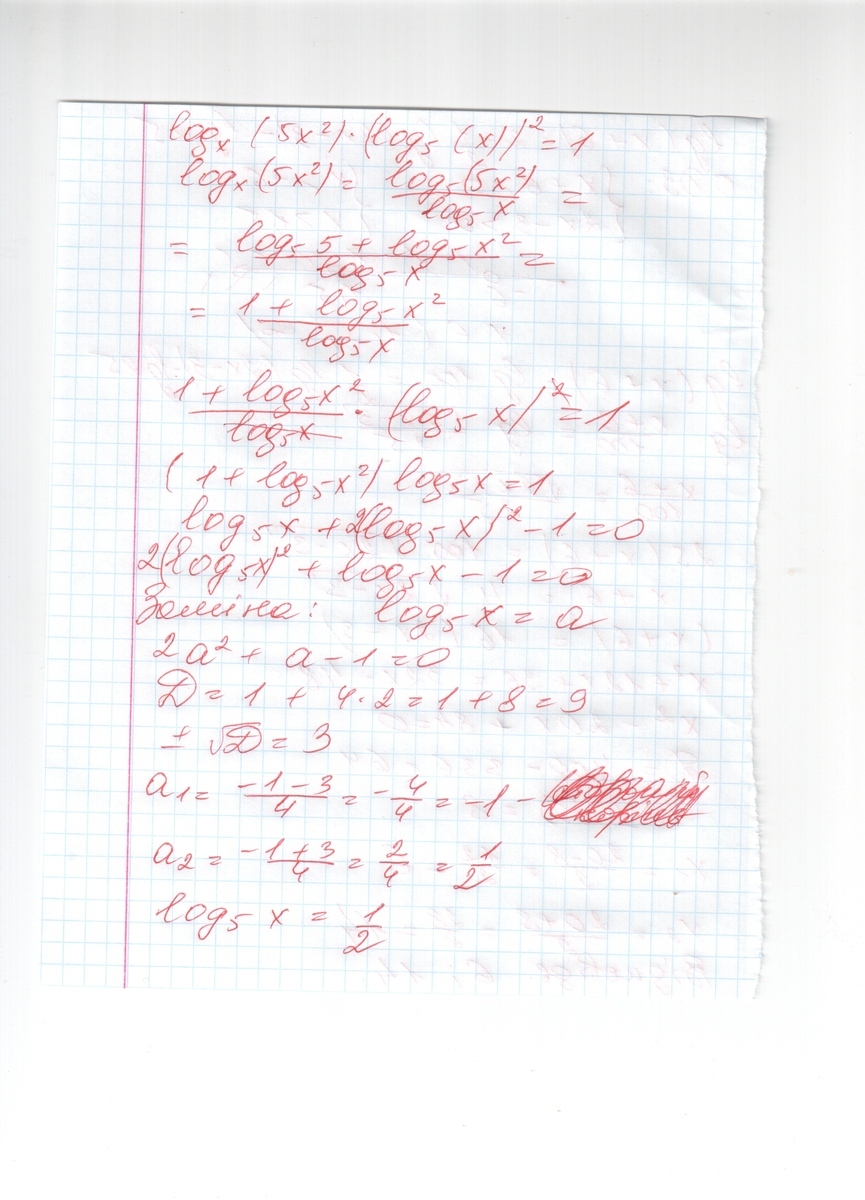 logₓ (5x²)·(log₅ (x))² = 1
logₓ(5x²) = log₅(5x²)/log₅ x =
= (log₅ 5 + log₅ x²)/log₅ x =
= (1 + log₅ x²)/log₅ x
(1 + log₅x²)/log₅x · (log₅ x)² = 1
(1 + log₅x²) log₅x = 1
log₅x + 2(log₅x)² - 1 = 0
2(log₅x)² + log₅x - 1 = 0
Заміна: log₅ x = a
2a² + a - 1 = 0
D = 1 + 4·2 = 1 + 8 = 9
± √D = 3
a₁ = (-1-3)/4 = -4/4 = -1 -
a₂ = (-1+3)/4 = 2/4 = 1/2
log₅ x = 1/2